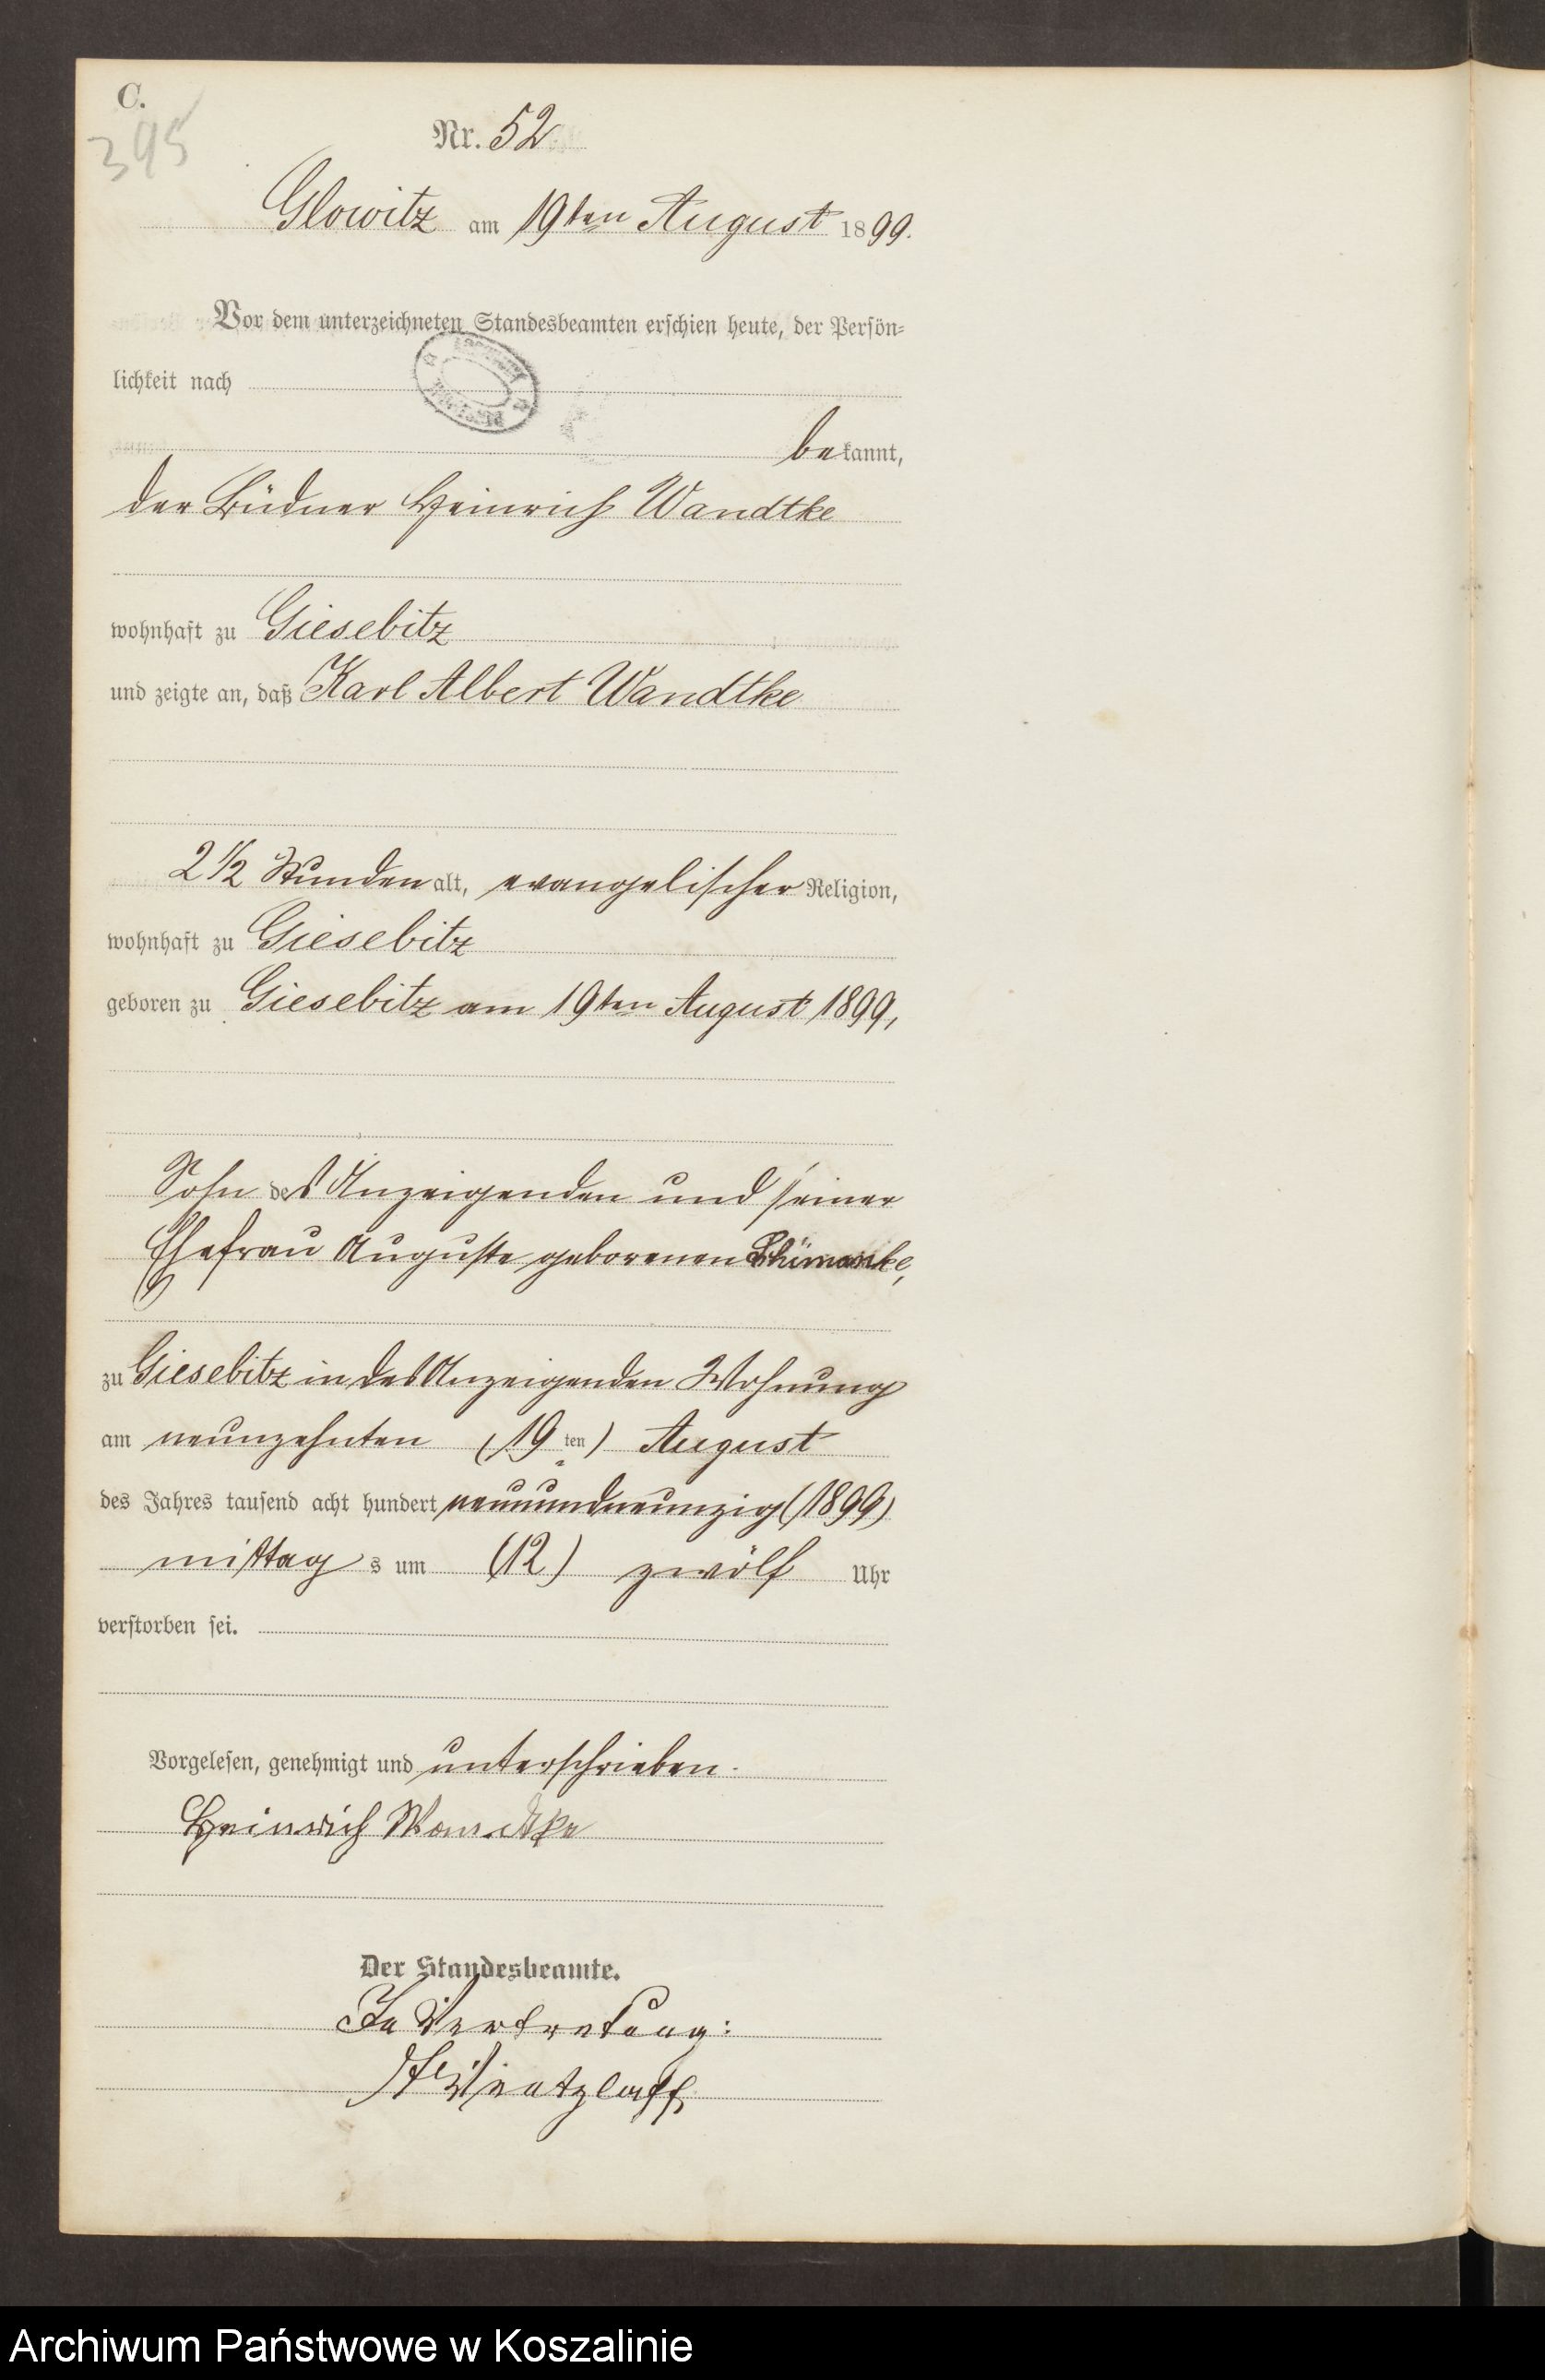 C.
395
Nr. 52
Glowitz am 19ten August 1899.
Vor dem unterzeichneten Standesbeamten erschien heute, der Persön-
lichkeit nach
bekannt,
der Büdner Heinrich Wandtke
wohnhaft zu Giesebitz
und zeigte an, daß Karl Albert Wandtke
2 1/2 Stunden alt, evangelischer Religion,
wohnhaft zu Giesebitz
geboren zu Giesebitz am 19ten August 1899,
Sohn des Anzeigenden und seiner
Ehefrau Auguste geborenen
zu Giesebitz in des Anzeigenden Wohnung
am neunzehnten (19 ten) August
des Jahres tausend acht hundert neunundneunzig (1899)
mittag s um (12) zwölf Uhr
verstorben sei.
Vorgelesen, genehmigt und unterschrieben.
Heinrich Wandtke
Der Standesbeamte.
In Vertretung:
Archiwum Państwowe w Koszalinie